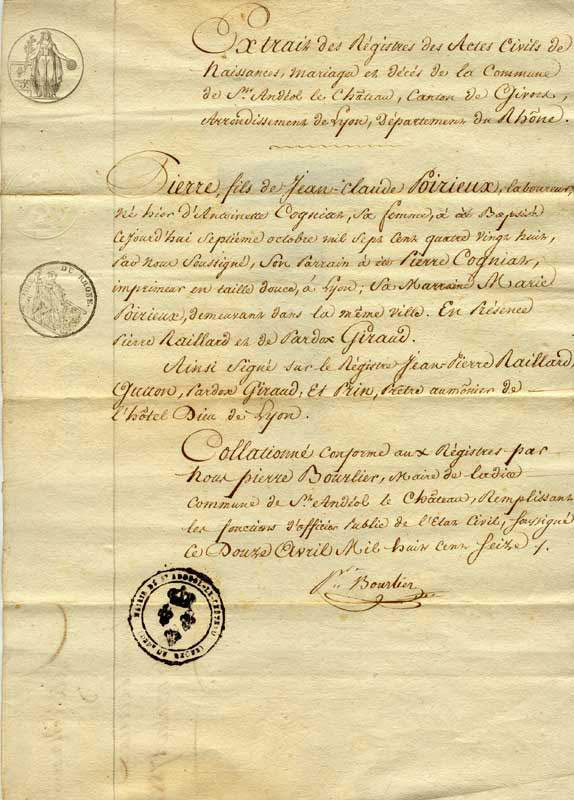 Extrait des Régistres des Actes Civils de
Naissances, mariage et décès de la Commune
de St. Andéol le Château, Canton de Givors,
Arrondissement de Lyon, Département du Rhône.
Pierre, fils de Jean-Claude Poirieux, laboureur,
né hier d'Antoinette Cogniat, sa femme, a été Baptisé
Cejourd'hui Septième octobre mil Sept Cent quatre vingt huit,
Par nous Soussigné, Son Parrain a été Pierre Cogniat,
imprimeur en taille douce, à Lyon; Sa Marraine Marie
Poirieux, demeurant dans la même ville. En Présence
Pierre Raillard et de Pardox Giraud.
Ainsi Signé sur le Régistre, Jean-Pierre Raillard,
Guiton, Pardox Giraud, Et Prin, Prêtre aumônier de
l'hôtel Dieu de Lyon.
Collationné conforme aux Régistres par
Nous pierre Bourlier, Maire de ladite
Commune de St. Andéol le Château, Remplissant
les fonctions d'officier Public de l'Etat Civil, soussigné
ce Douze Avril Mil huit cent Seize
Bourlier
DU RHONE.
MAIRIE DE ST ANDEOL-LE-CHATEAU
(RHONE)